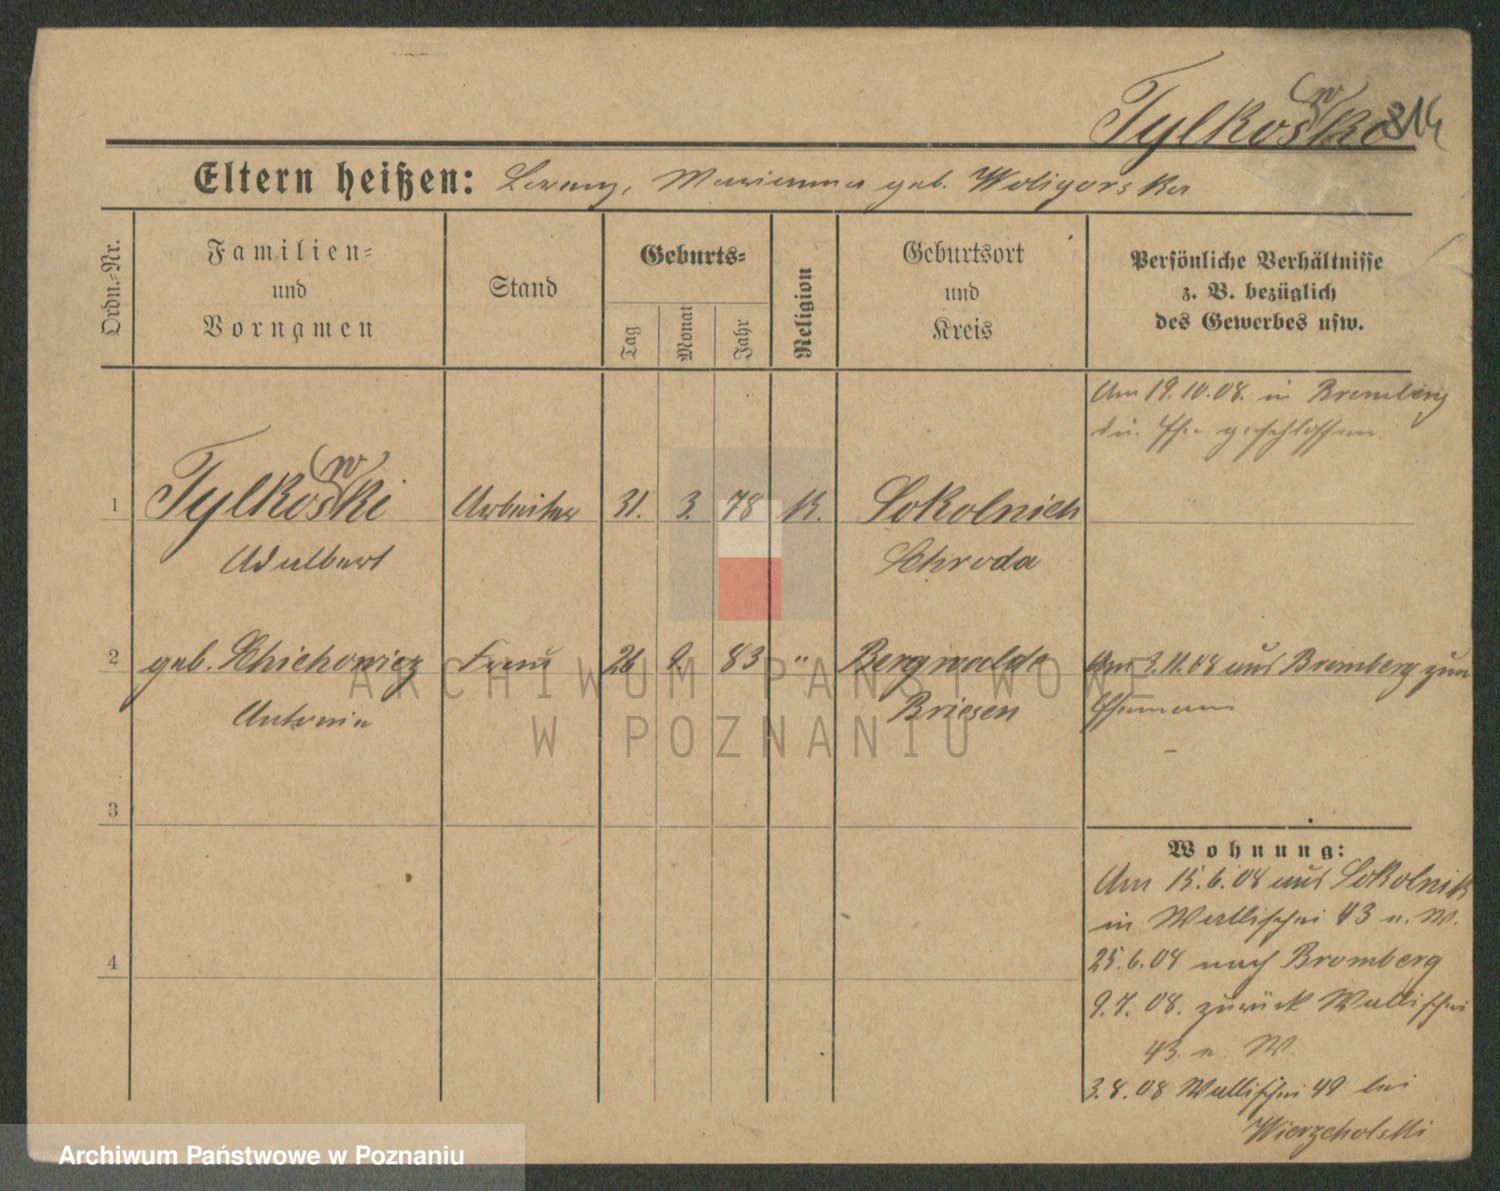 Tylkoski
(w)
814
Eltern heißen: Lorenz, Marianna geb. Woligorska
Ordn.-Nr.
Familien-
und
Vornamen
Stand
Geburts-
Tag
Monat
Jahr
Religion
Geburtsort
und
Kreis
Persönliche Verhältnisse
z. B. bezüglich
des Gewerbes usw.
Am 19.10.08. in Bromberg
die Ehe geschlossen.
(w)
1 Tylkoski Arbeiter 31. 3. 78 K. Sokolnick
Adalbert Schroda
2 geb. Schichowicz Frau 26 9. 83 " Bergwalde Am 2.11.08 aus Bromberg zum
Antonie Briesen Ehemann
3
Wohnung:
Am 15.6.08 aus Sokolnik
in Wallischei 43 n. W.
4
25.6.08 nach Bromberg
9.7.08. zurück Wallischei
43 n. W.
3.8.08 Wallischei 49 bei
Wierzcholski
ARCHIWUM PAŃSTWOWE
W POZNANIU
Archiwum Państwowe w Poznaniu